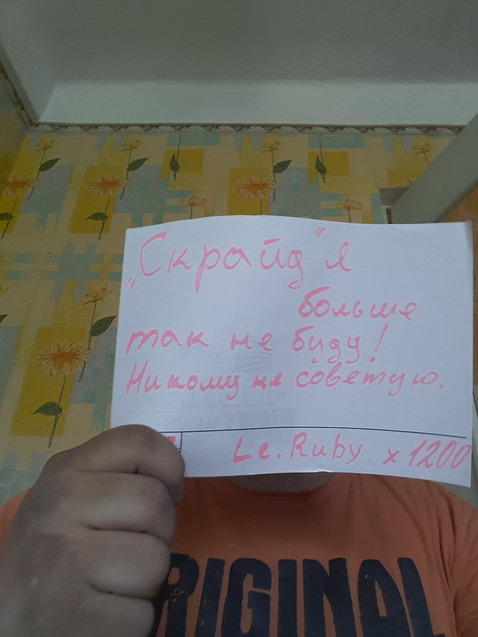 „Скрайд" я
больше
так не буду!
Никому не советую.
Le.Ruby x1200
ORIGINAL